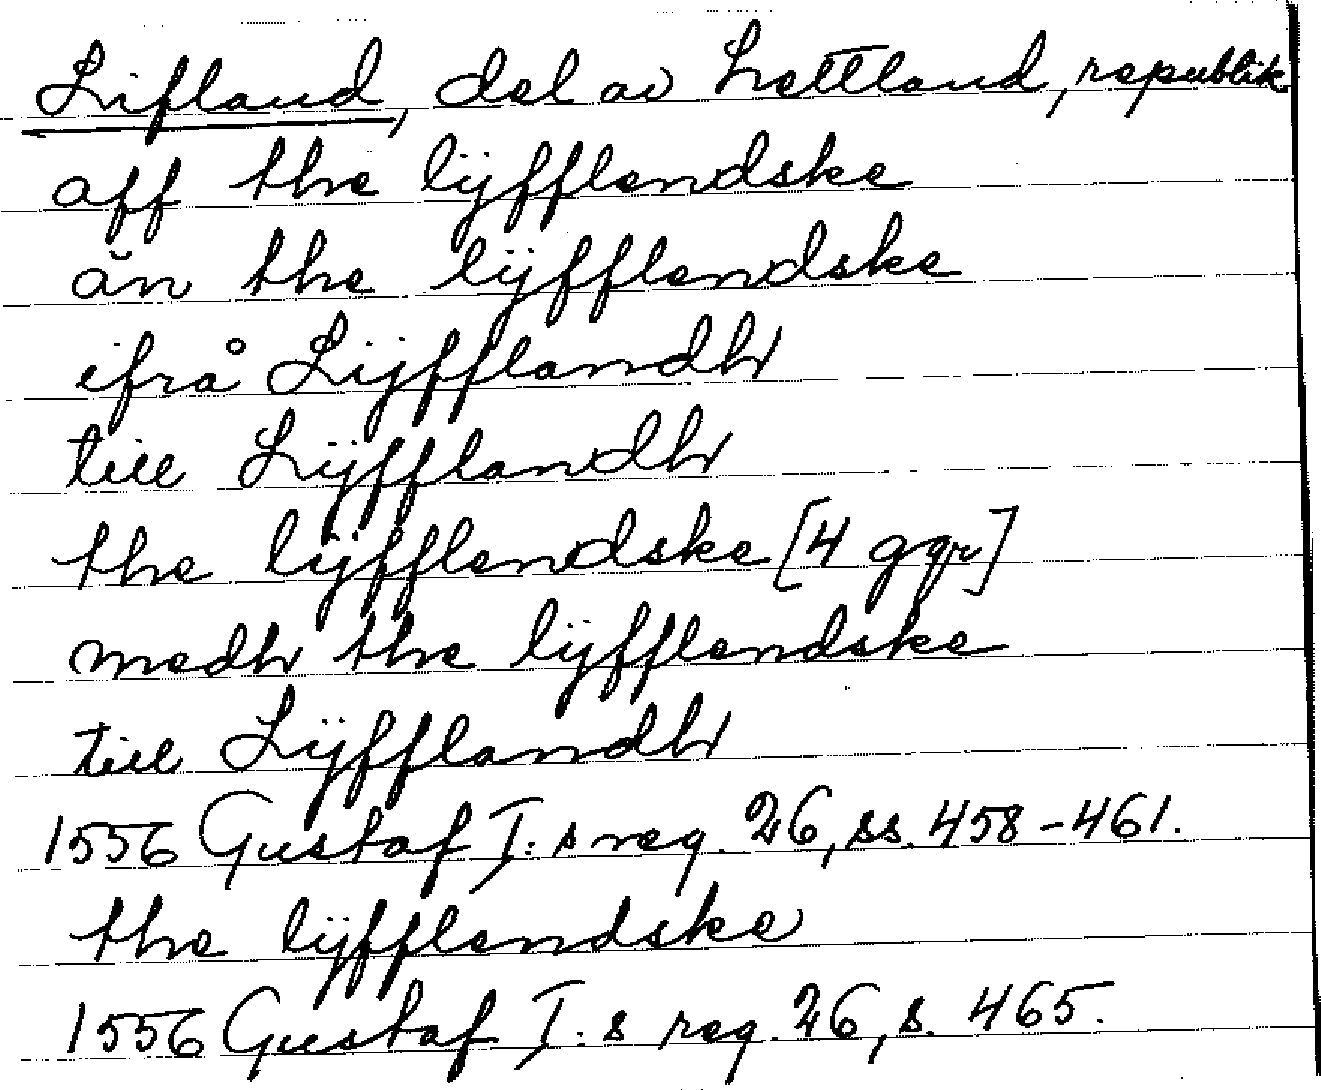 Lifland, del av Lettland, republik
aff the lÿfflendske
än the lÿfflendske
ifrå Lijfflandh
till Lÿfflandh
the lÿfflendske [4 ggr]
medh the lÿfflendske
till Lÿfflandh
1556 Gustaf I:s reg. 26, ss. 458-461.
the lÿfflendske
1556 Gustaf I:s reg. 26, s. 465.